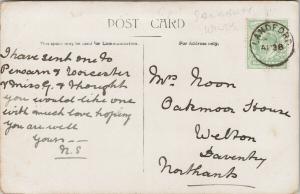 POST CARD
This space may be used for Communication.
I have sent one to
Pencarn & Worcester
& Miss G. & thought
you would like one
with much love hoping
you are well
Yours
N.S
Mrs Noon
Oakmoor House
Welton
Daventry
Northants